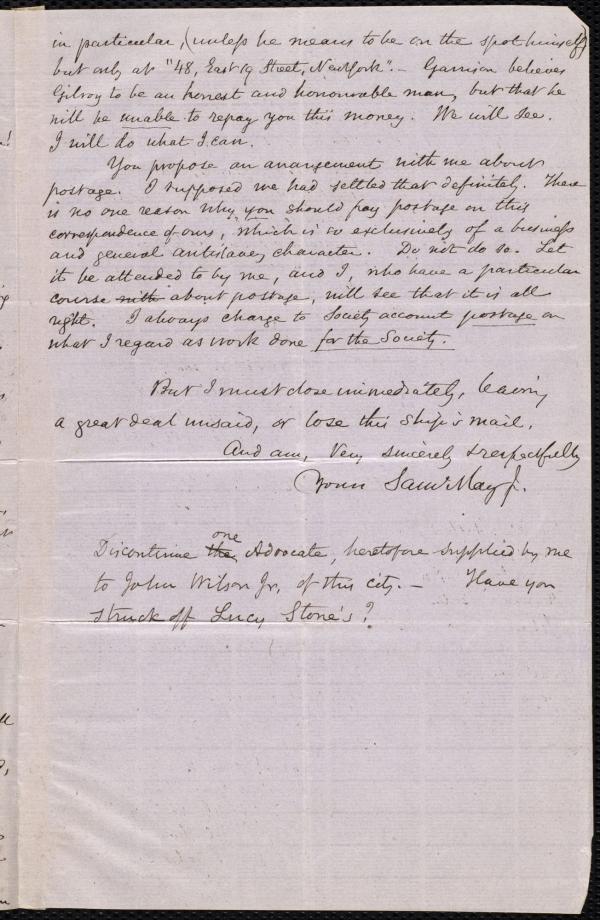 in particular, (unless he means to be on the spot himself)
but only at "48, East 19 Street, New York".— Garrison believes
Gilroy to be an honest and honourable man, but that he
will be unable to repay you this money. We will see.
I will do what I can.
You propose an arrangement with me about
postage. I supposed we had settled that definitely. There
is no one reason why you should pay postage on this
correspondence of ours, which is so exclusively of a business
and general antislavery character. Do not do so. Let
it be attended to by me, and I, who have a particular
course with about postage, will see that it is all
right. I always charge to Society account postage on
what I regard as work done for the Society.
But I must close immediately, leaving
a great deal unsaid, or lose this ship's mail.
And am, Very sincerely & respectfully
Yours Saml May Jr.
one
Discontinue the Advocate, heretofore supplied by me
to John Wilson Jr, of this city.— Have you
struck off Lucy Stone's?